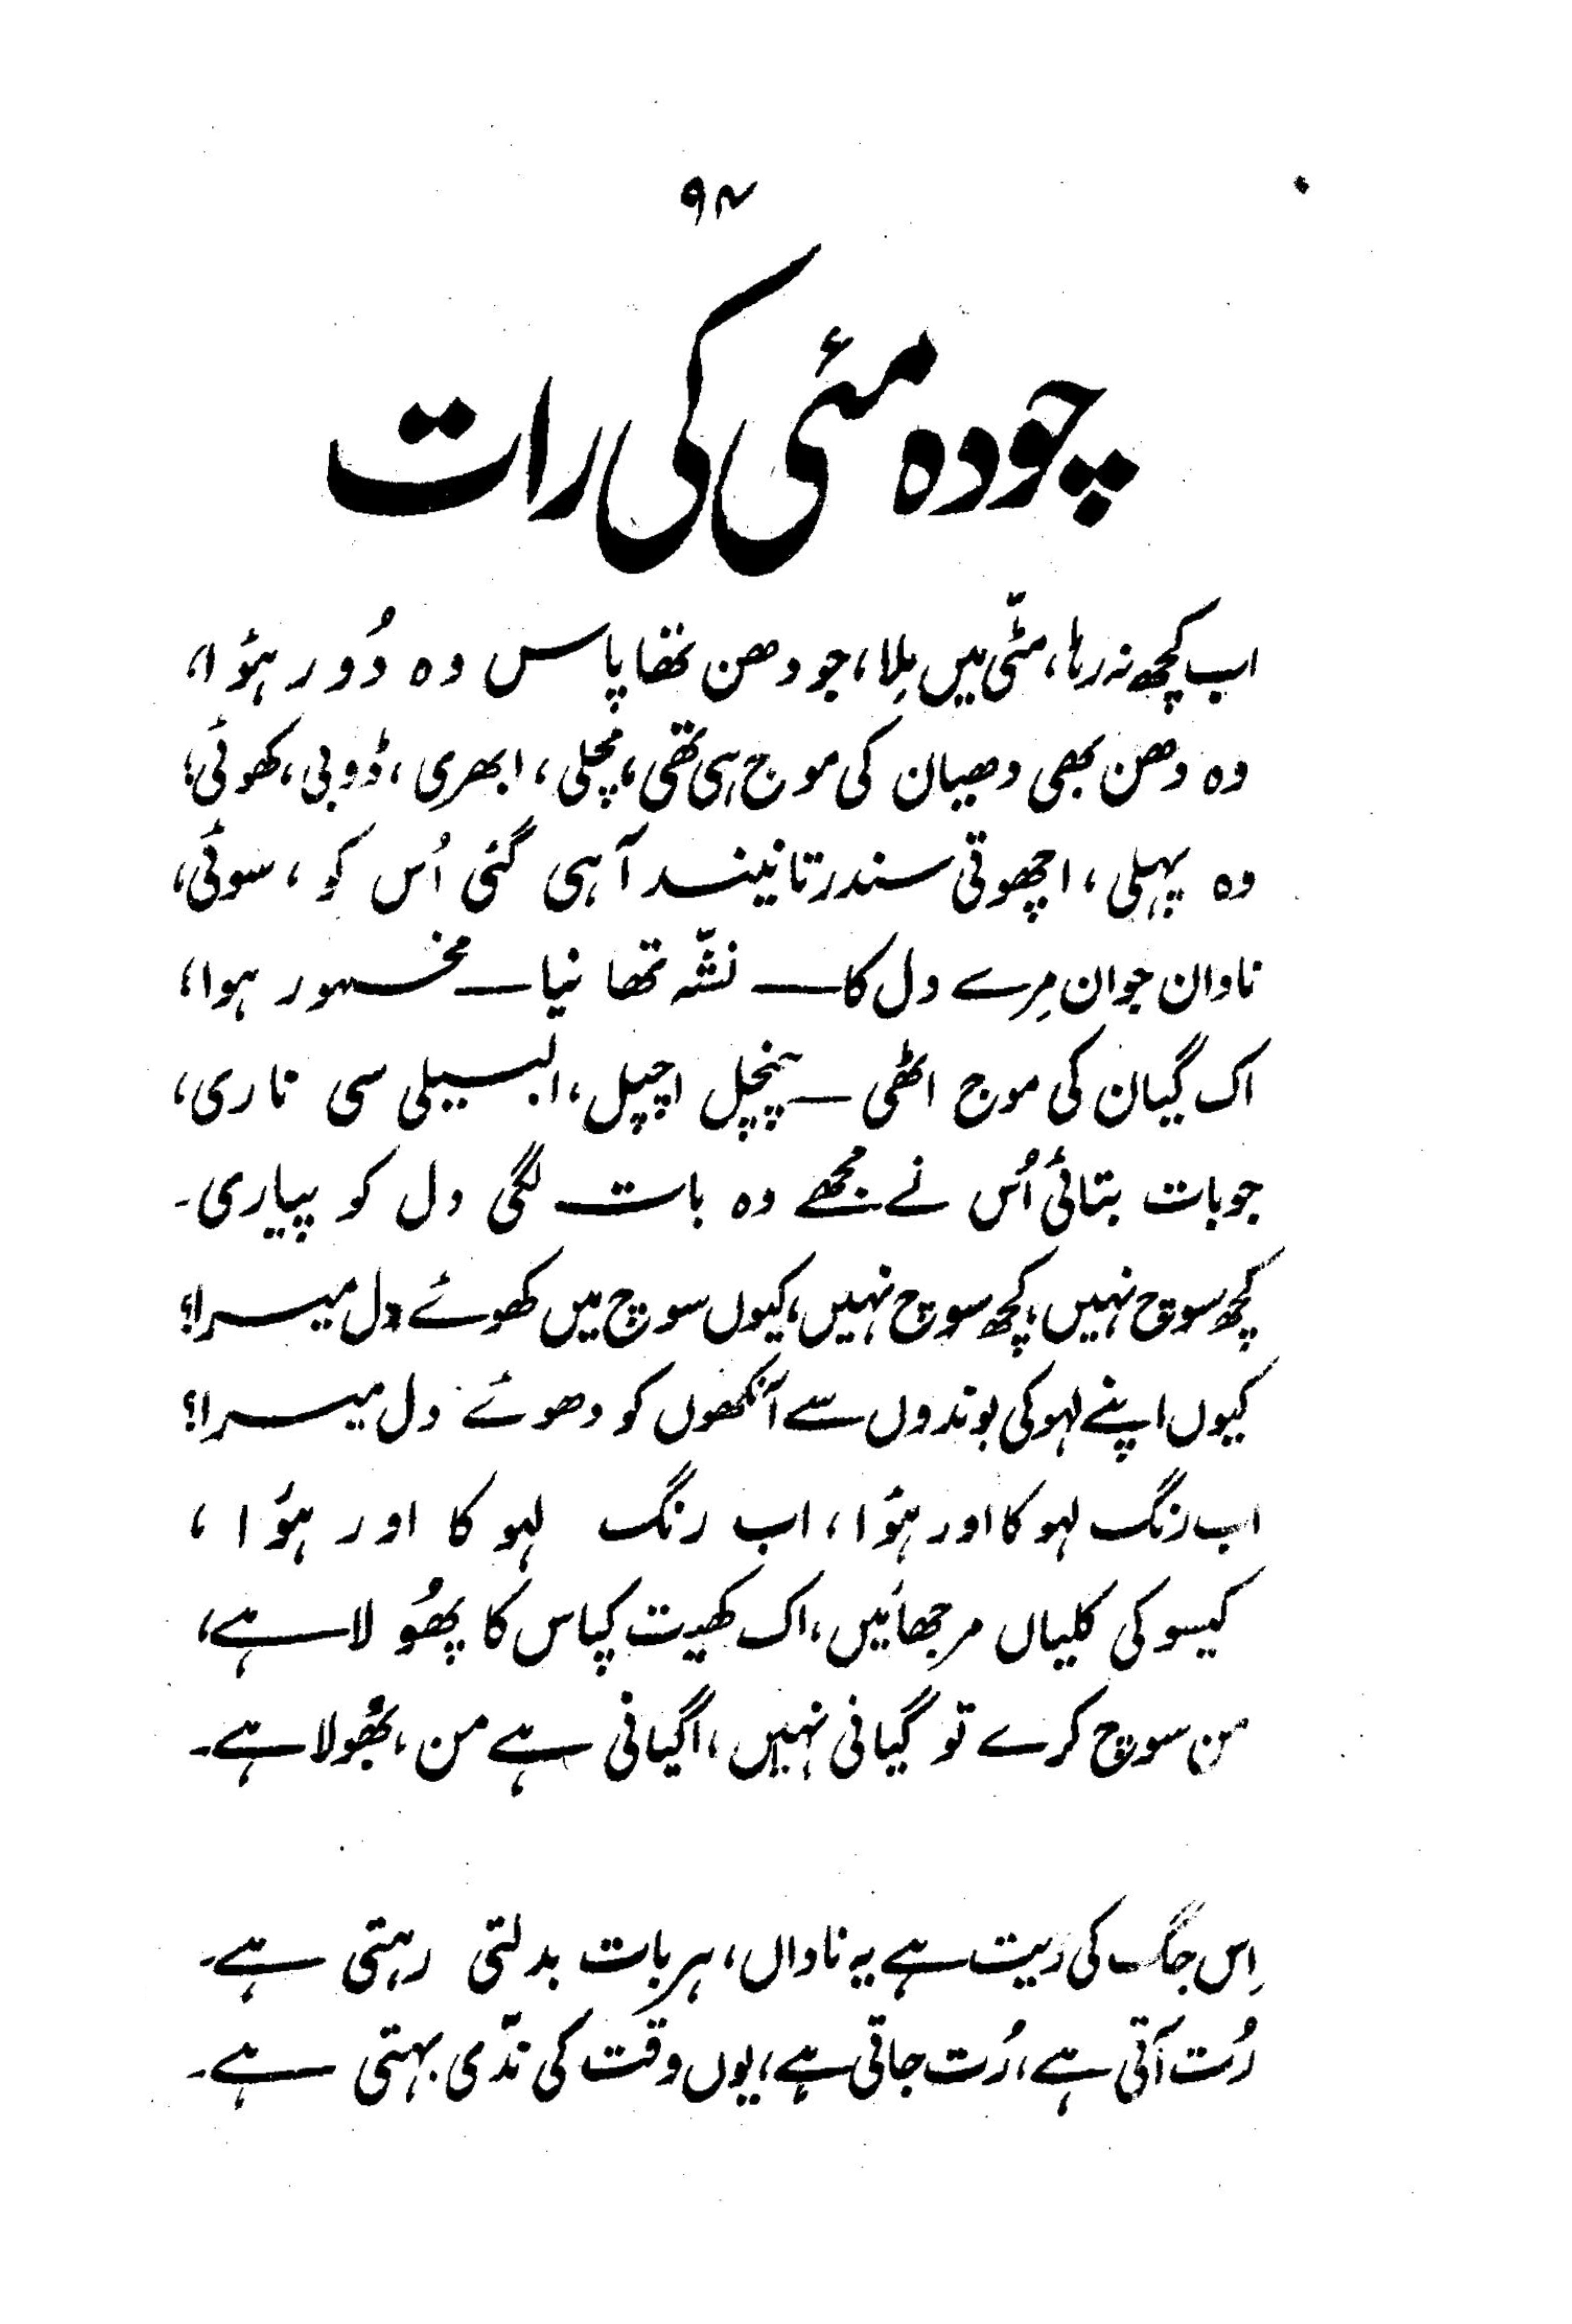 ۹۴
چودہ مئی کی رات
اب کچھ نہ رہا، مٹّی میں مِلا، جو دھن تھا پاس وہ دُور ہؤا،
وہ دھن بھی دھیان کی موج ہی تھی، مچلی، ابھری، ڈوبی، کھوئی،
وہ پہلی، اچھوتی سندرتا نیند آ ہی گئی اُس کو، سوئی،
نادان جوان مِرے دل کا ــ نشّہ تھا نیا ــ مخمور ہوا،
اک گیان کی موج اٹھی ــ چنچل اچپل، البیلی سی ناری،
جو بات بتائی اُس نے مجھے وہ بات لگی دل کو پیاری۔
کچھ سوچ نہیں، کچھ سوچ نہیں، کیوں سوچ میں کھوئے دل میرا؟
کیوں اپنے لہو کی بوندوں سے آنکھوں کو دھوئے دل میرا؟
اب رنگ لہو کا اور ہؤا، اب رنگ لہو کا اور ہؤا،
کیسو کی کلیاں مرجھائیں، اک کھیت کپاس کا پھُولا ہے،
من سوچ کرے تو گیانی نہیں، اگیانی ہے من، بھُولا ہے۔
اِس جگ کی ریت ہے یہ ناداں، ہر بات بدلتی رہتی ہے۔
رُت آتی ہے، رُت جاتی ہے، یوں وقت کی ندّی بہتی ہے۔